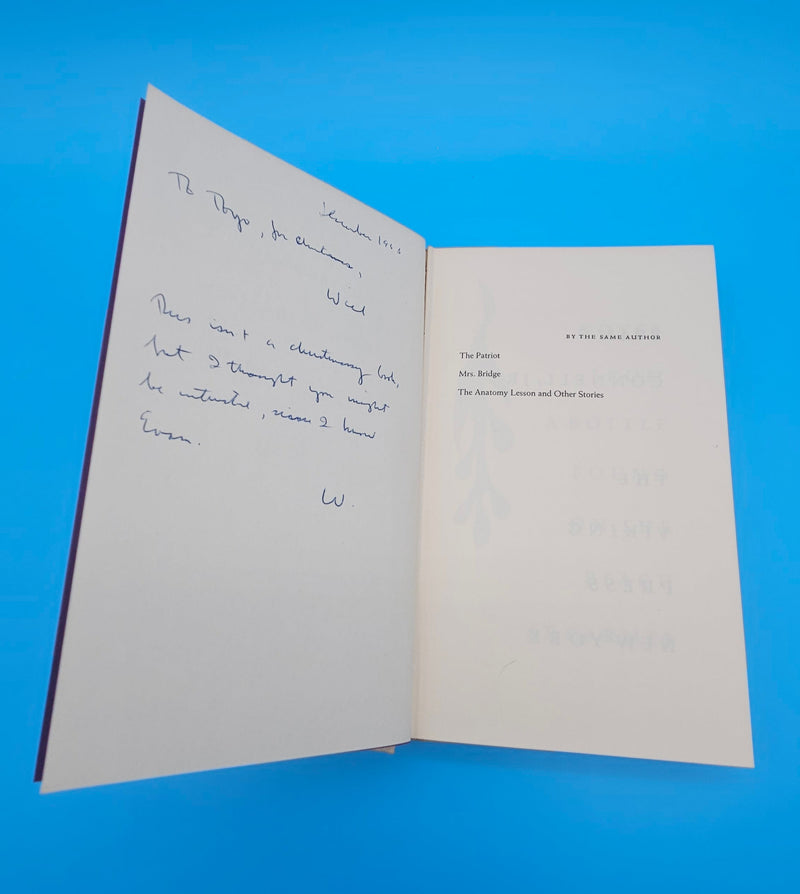 December
To Thryo, for christmas,
Will
This isn't a christmasy book,
but I thought you might
be interested, since I know
Evan.
W.
BY THE SAME AUTHOR
The Patriot
Mrs. Bridge
The Anatomy Lesson and Other Stories